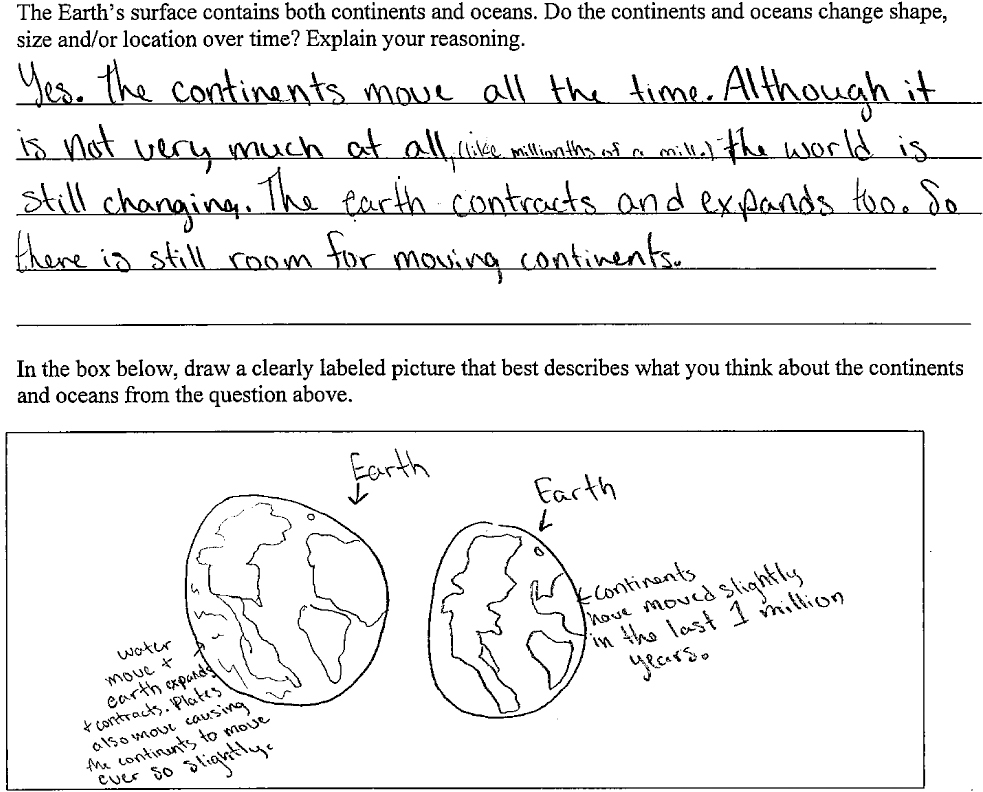 The Earth's surface contains both continents and oceans. Do the continents and oceans change shape,
size and/or location over time? Explain your reasoning.
Yes. The continents move all the time. Although it
is not very much at all, (like millionths of a mill.) the world is
still changing. The earth contracts and expands too. So
there is still room for moving continents.
In the box below, draw a clearly labeled picture that best describes what you think about the continents
and oceans from the question above.
Earth
Earth
continents
have moved slightly
in the last 1 million
years.
water
move +
earth expands
+ contracts. Plates
also move causing
the continents to move
ever so slightly.